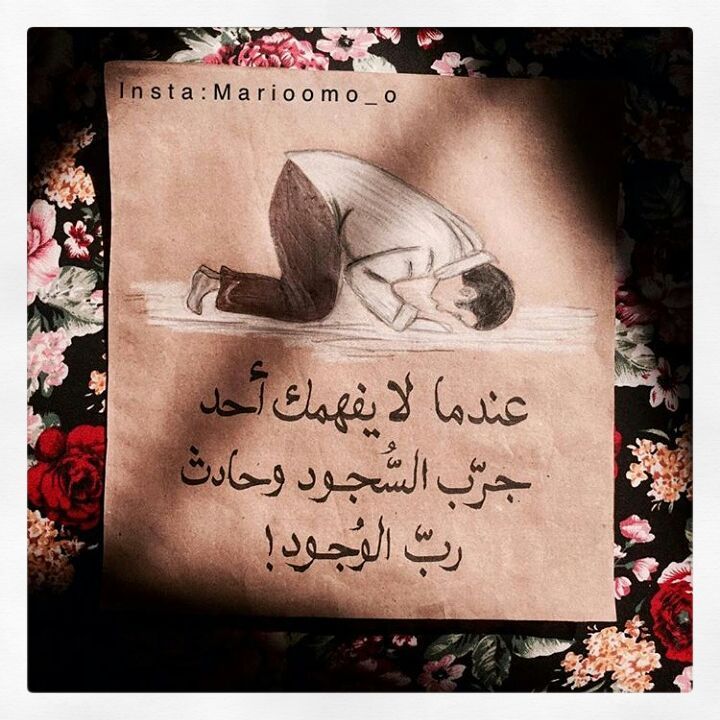 Insta:Marioomo_o
عندما لا يفهمك أحد
جرّب السُّجود وحادث
ربّ الوُجود!